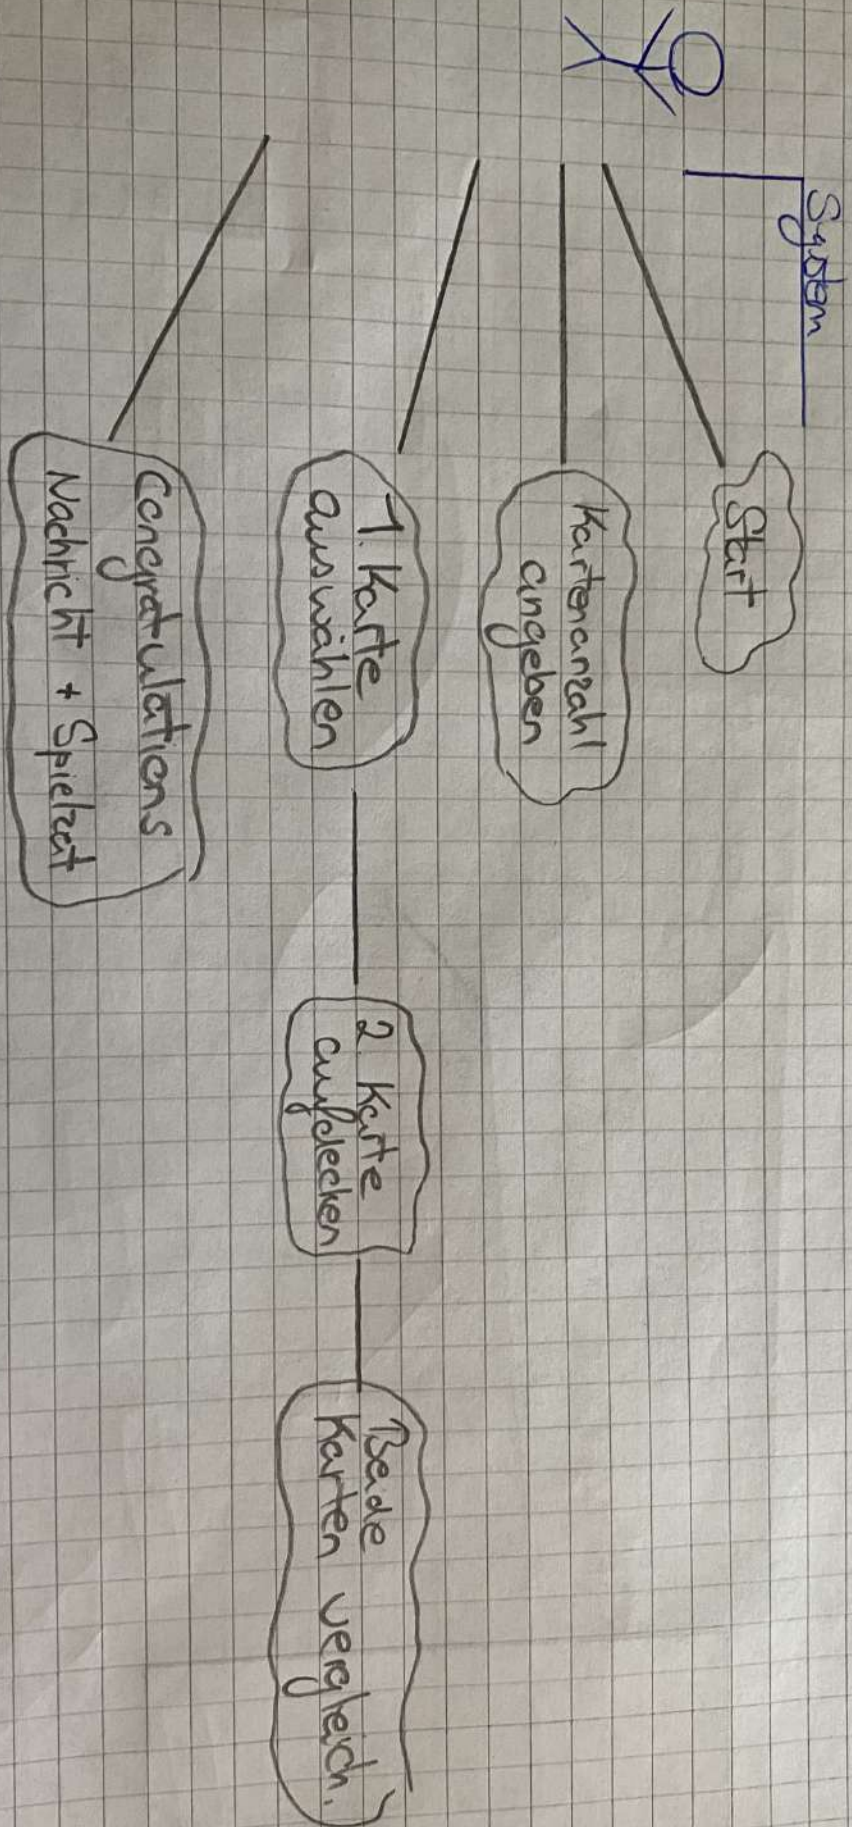 System
Start
Kartenanzahl
angeben
1. Karte
auswählen
2. Karte
aufdecken
Beide
Karten vergleich.
Congratulations
Nachricht + Spielzeit